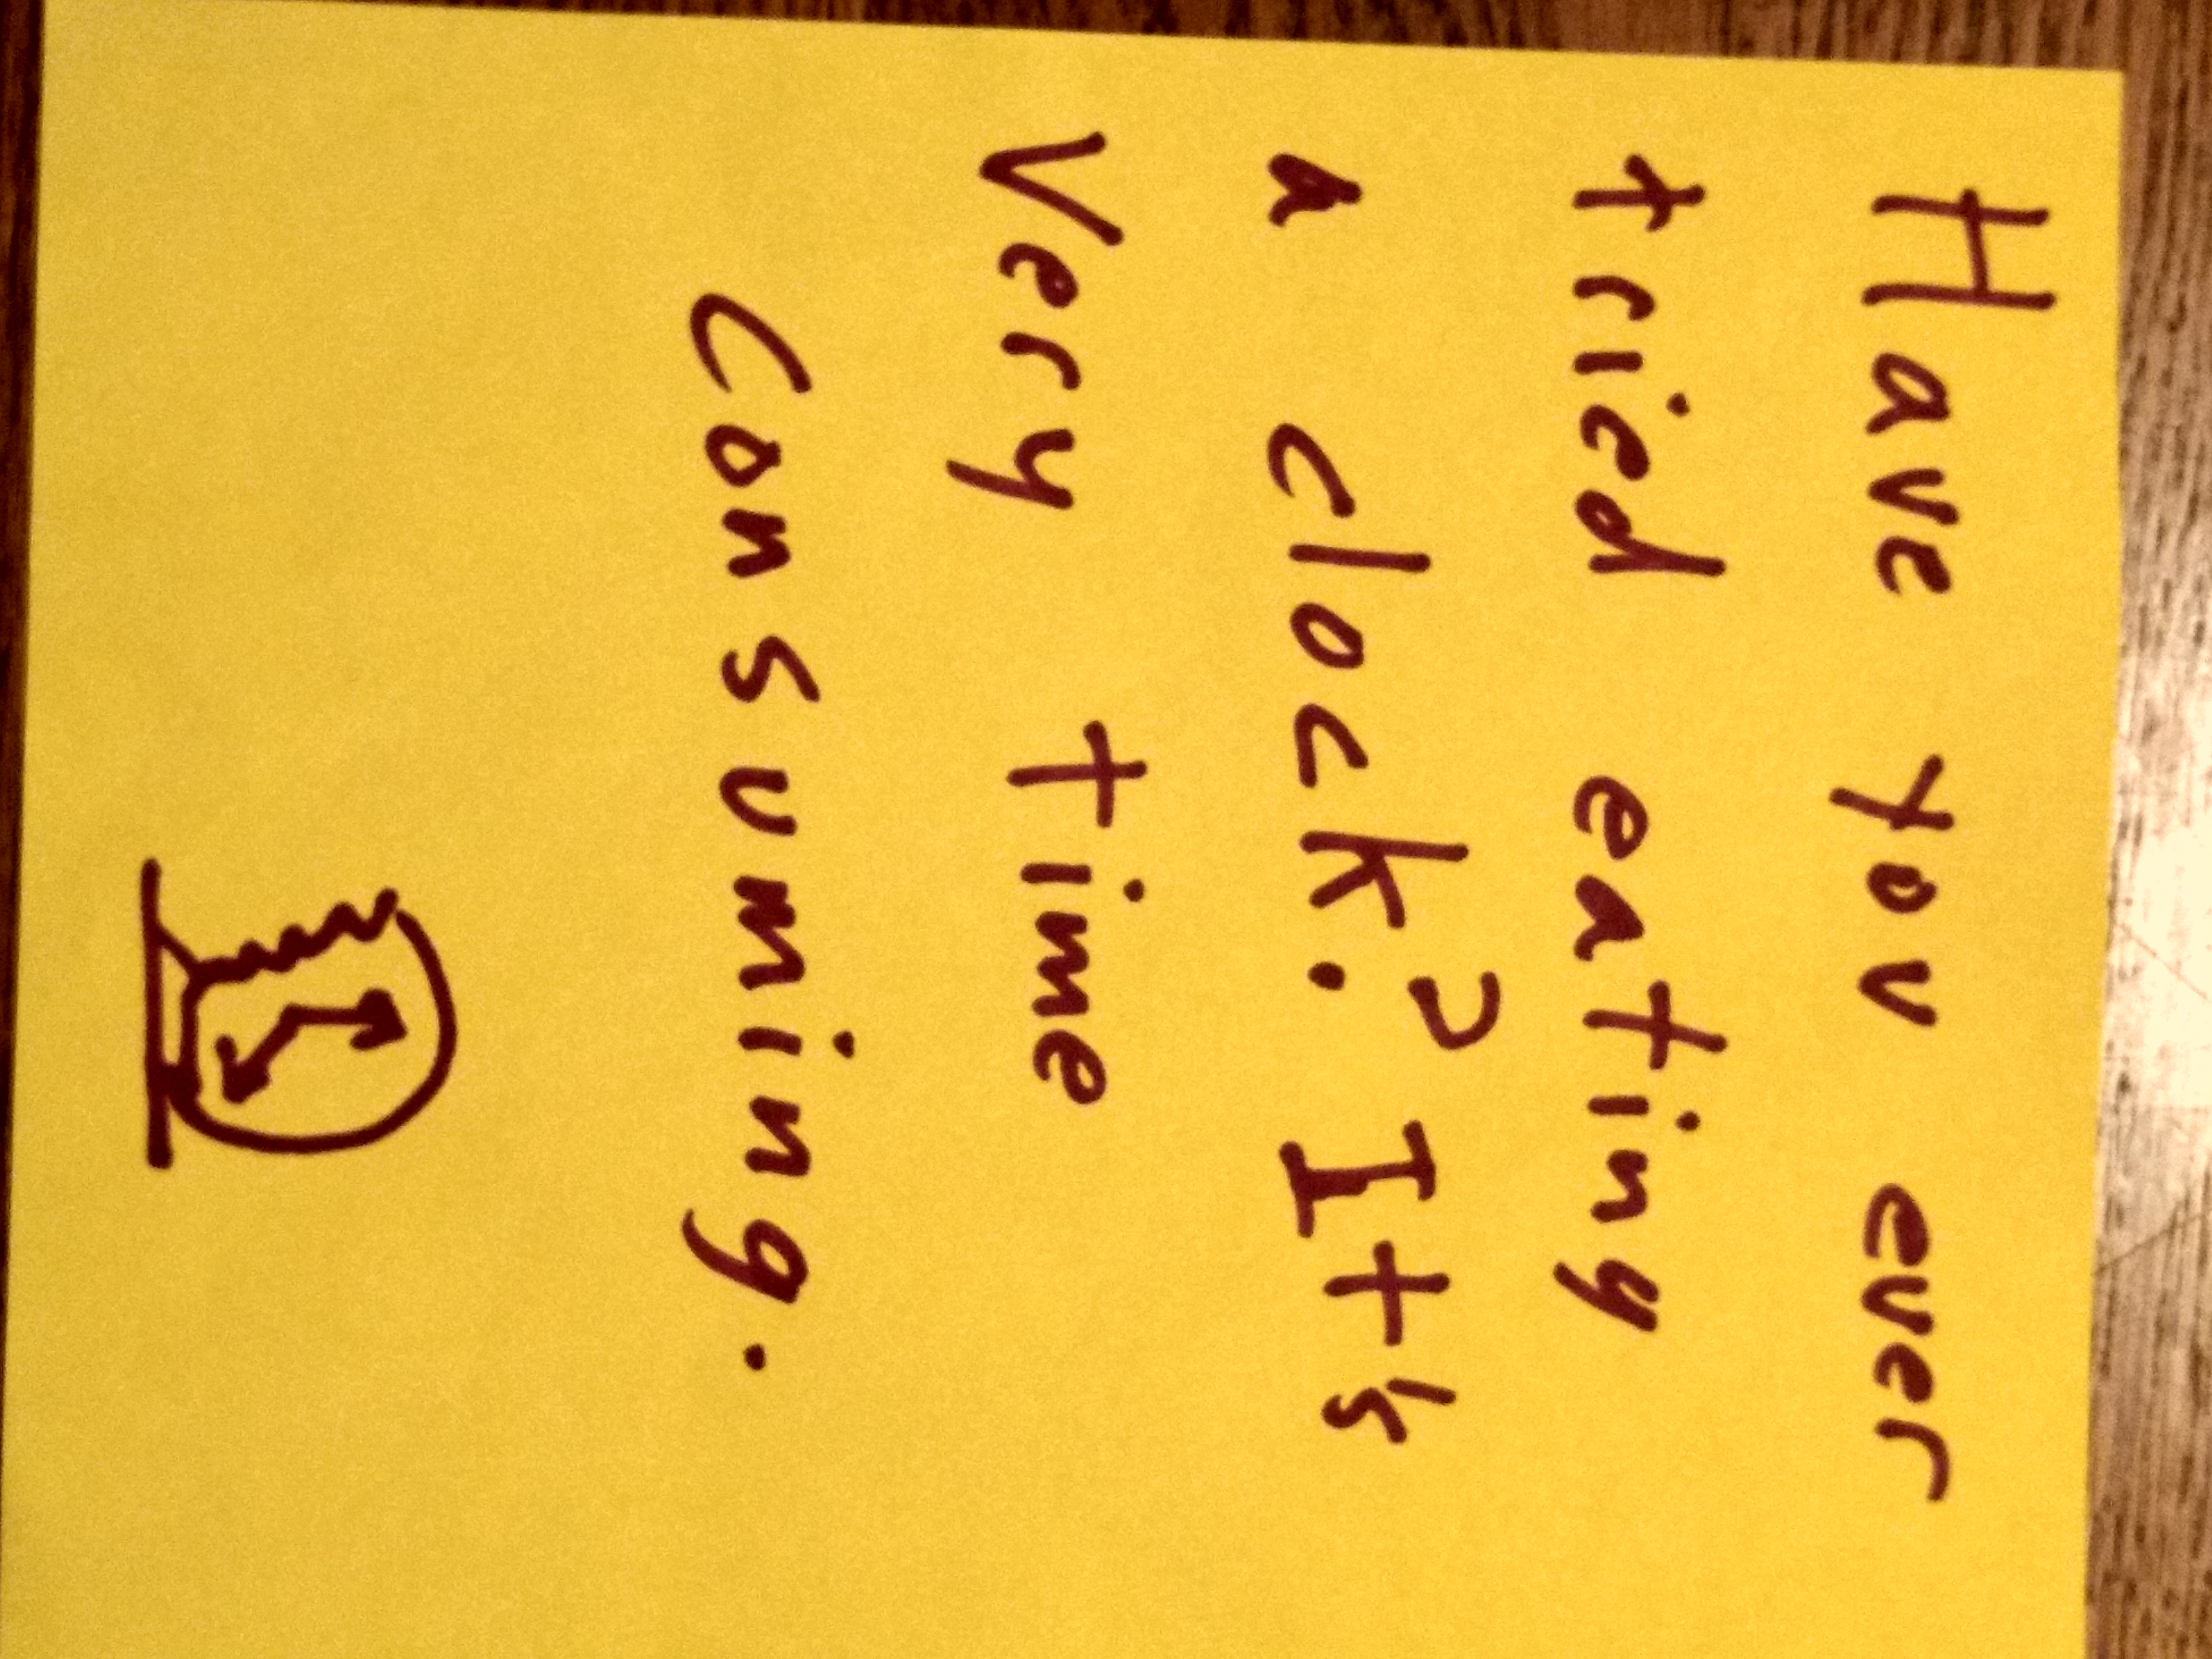 Have you ever
tried eating
a clock? It's
Very time
Consuming.